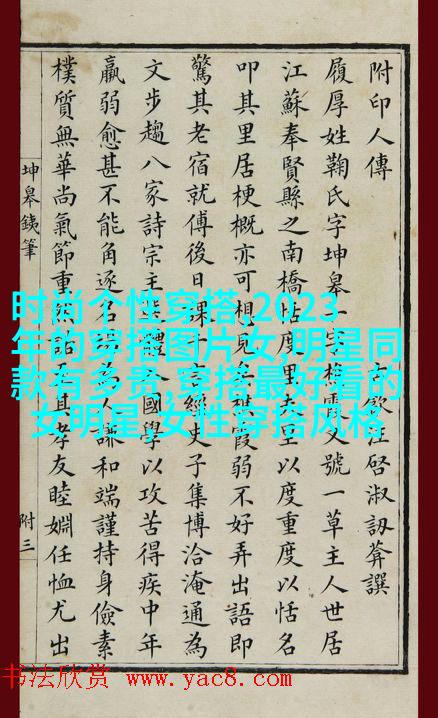 附印人傳
古歙汪啓淑訒葊譔
履厚姓鞠氏字坤皋一字樵霞又號一草主人世居
江蘇奉賢縣之南橋帖度里夫豆以度重度以恬名
叩其里居梗概亦可想見矣樵霞弱不好弄出語即
驚其老宿就傅後日課千言經史子集博洽淹通為
文步趨八家詩宗主體國學以攻苦得疾中年
羸弱愈甚不能角逐名為人謙和端謹持身儉素
樸質無華尚氣節重然諾其孝友睦婣任恤尤出
坤皋鐵筆
附三
时尚个性穿搭,2023
年的穿搭图片女,明星同
款有多贵,穿搭最好看的
女明星,女性穿搭风格
书法欣赏 www.yac8.com